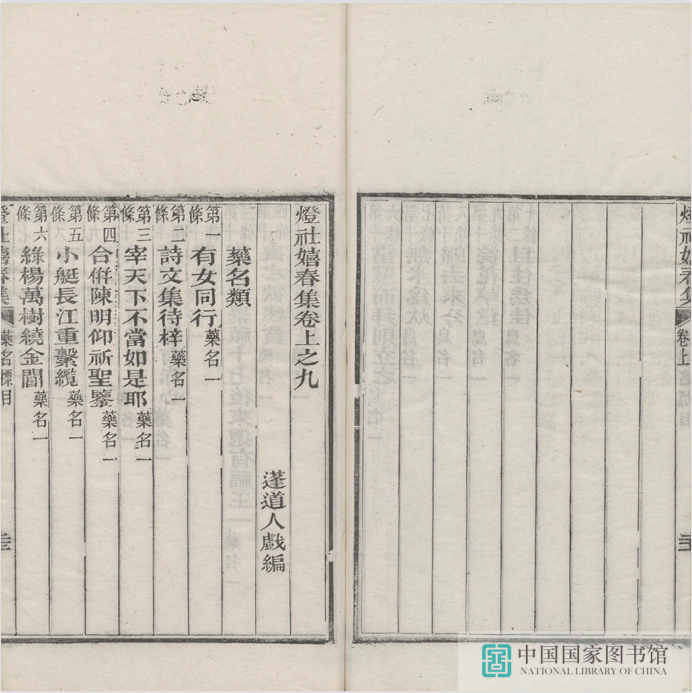 燈社嬉春集
卷上
燈社嬉春集卷上之九
蓬道人戲編
藥名類
第一條
有女同行藥名一
第二條
詩文集待梓藥名一
第三條
宰天下不當如是耶藥名一
第四條
合併陳明仰祈聖鑒藥名一
第五條
小艇長江重繫纜藥名一
第六條
綠楊萬樹繞金閶藥名一
燈社嬉春集
藥名標目
中国国家图书馆
NATIONAL LIBRARY OF CHINA